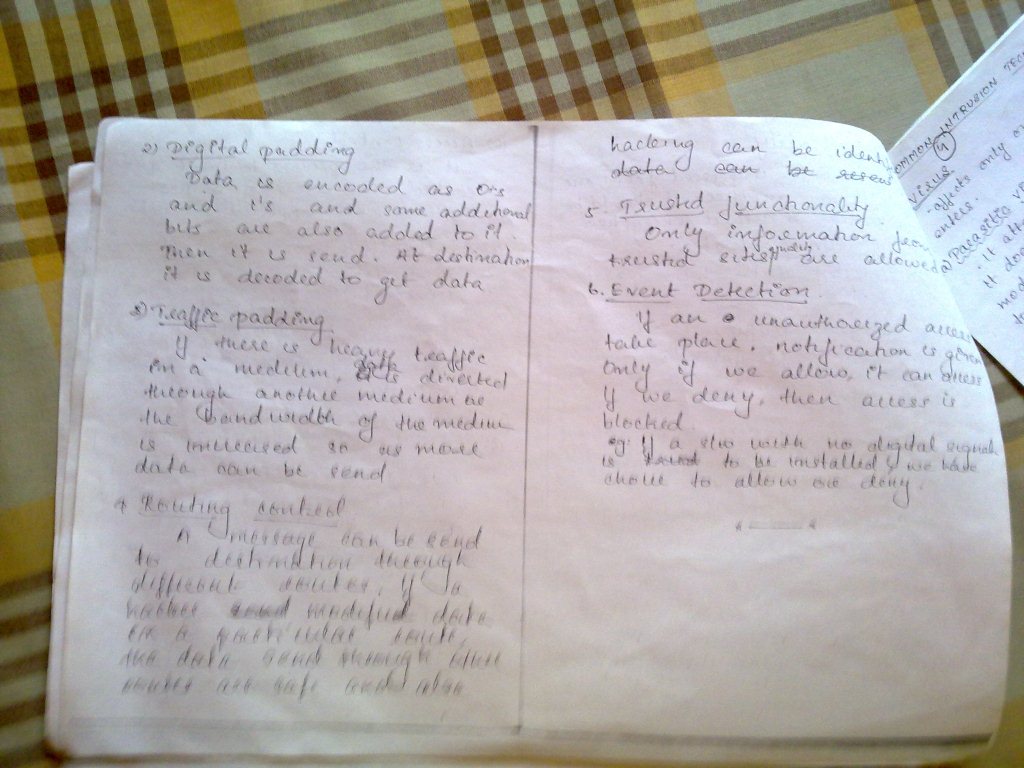 2) Digital padding
Data is encoded as 0's
and 1's and some additional
bits are also added to it.
Then it is send. At destination
it is decoded to get data
3) Traffic padding
If there is heavy traffic
in a medium, data is directed
through another medium or
the bandwidth of the medium
is increased so as more
data can be send
4 Routing control
A message can be send
to destination through
different routes, if a
hacker modified data
on a particular route,
the data send through other
routes are safe and also
hacking can be identi
data can be
5. Trusted functionality
Only information from
trusted sites are allowed
6. Event Detection
If an unauthorized access
take place, notification is given
Only if we allow, it can access
If we deny, then access is
blocked.
eg: If a s/w with no digital signat
is to be installed, we have
choice to allow or deny.
COMMON INTRUSION TEC
4
virus
- affects only
enters.
2) Parasitic
it
it